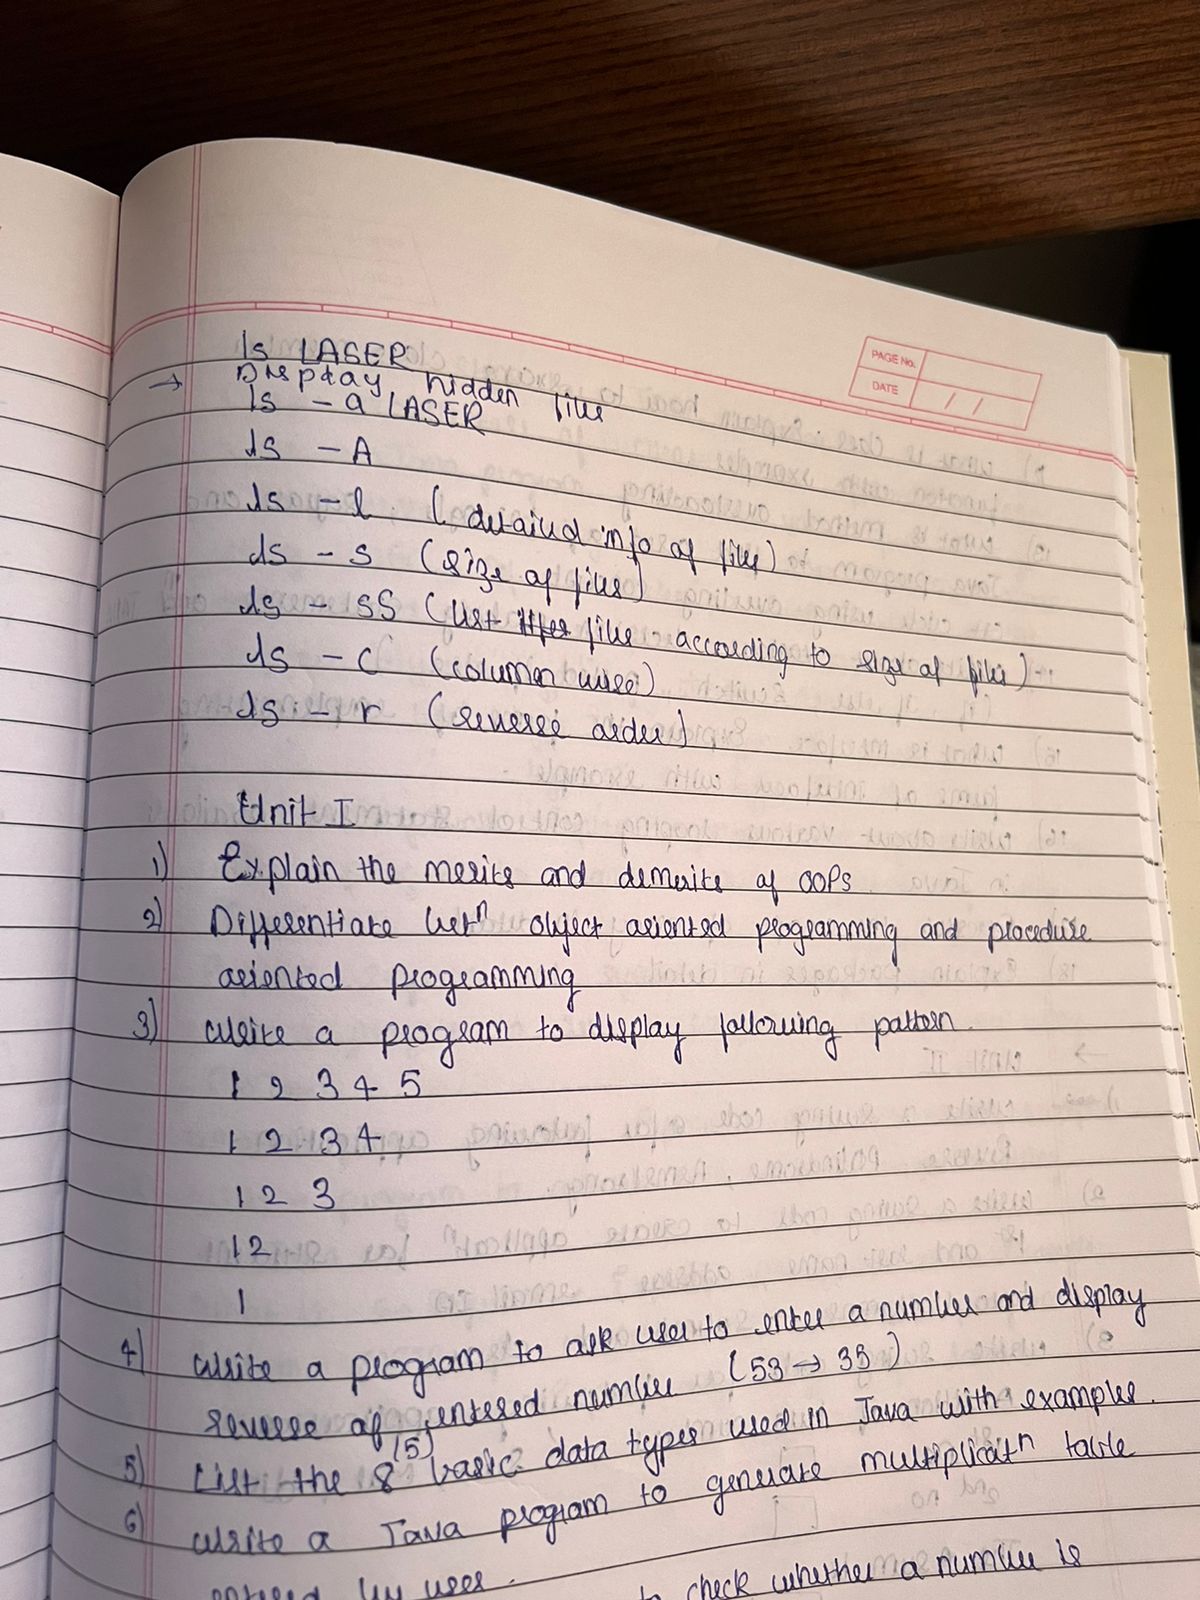 PAGE No.
DATE / /
ls LASER
→ Display hidden files
ls - a LASER
ls - A
ls - l (detailed info of files)
ls - s (size of files)
ls - sS (list files according to size of files)
ls - C (column wise)
ls - r (reverse order)
Unit I
1) Explain the merits and demerits of OOPs
2) Differentiate betⁿ object oriented programming and procedure
oriented programming
3) Write a program to display following pattern.
1 2 3 4 5
1 2 3 4
1 2 3
1 2
1
4) Write a program to ask user to enter a number and display
reverse of entered number (53 → 35)
5) List the 8 (5) basic data types used in Java with examples.
6) Write a Java program to generate multiplicatⁿ table
entered by user.
to check whether a number is